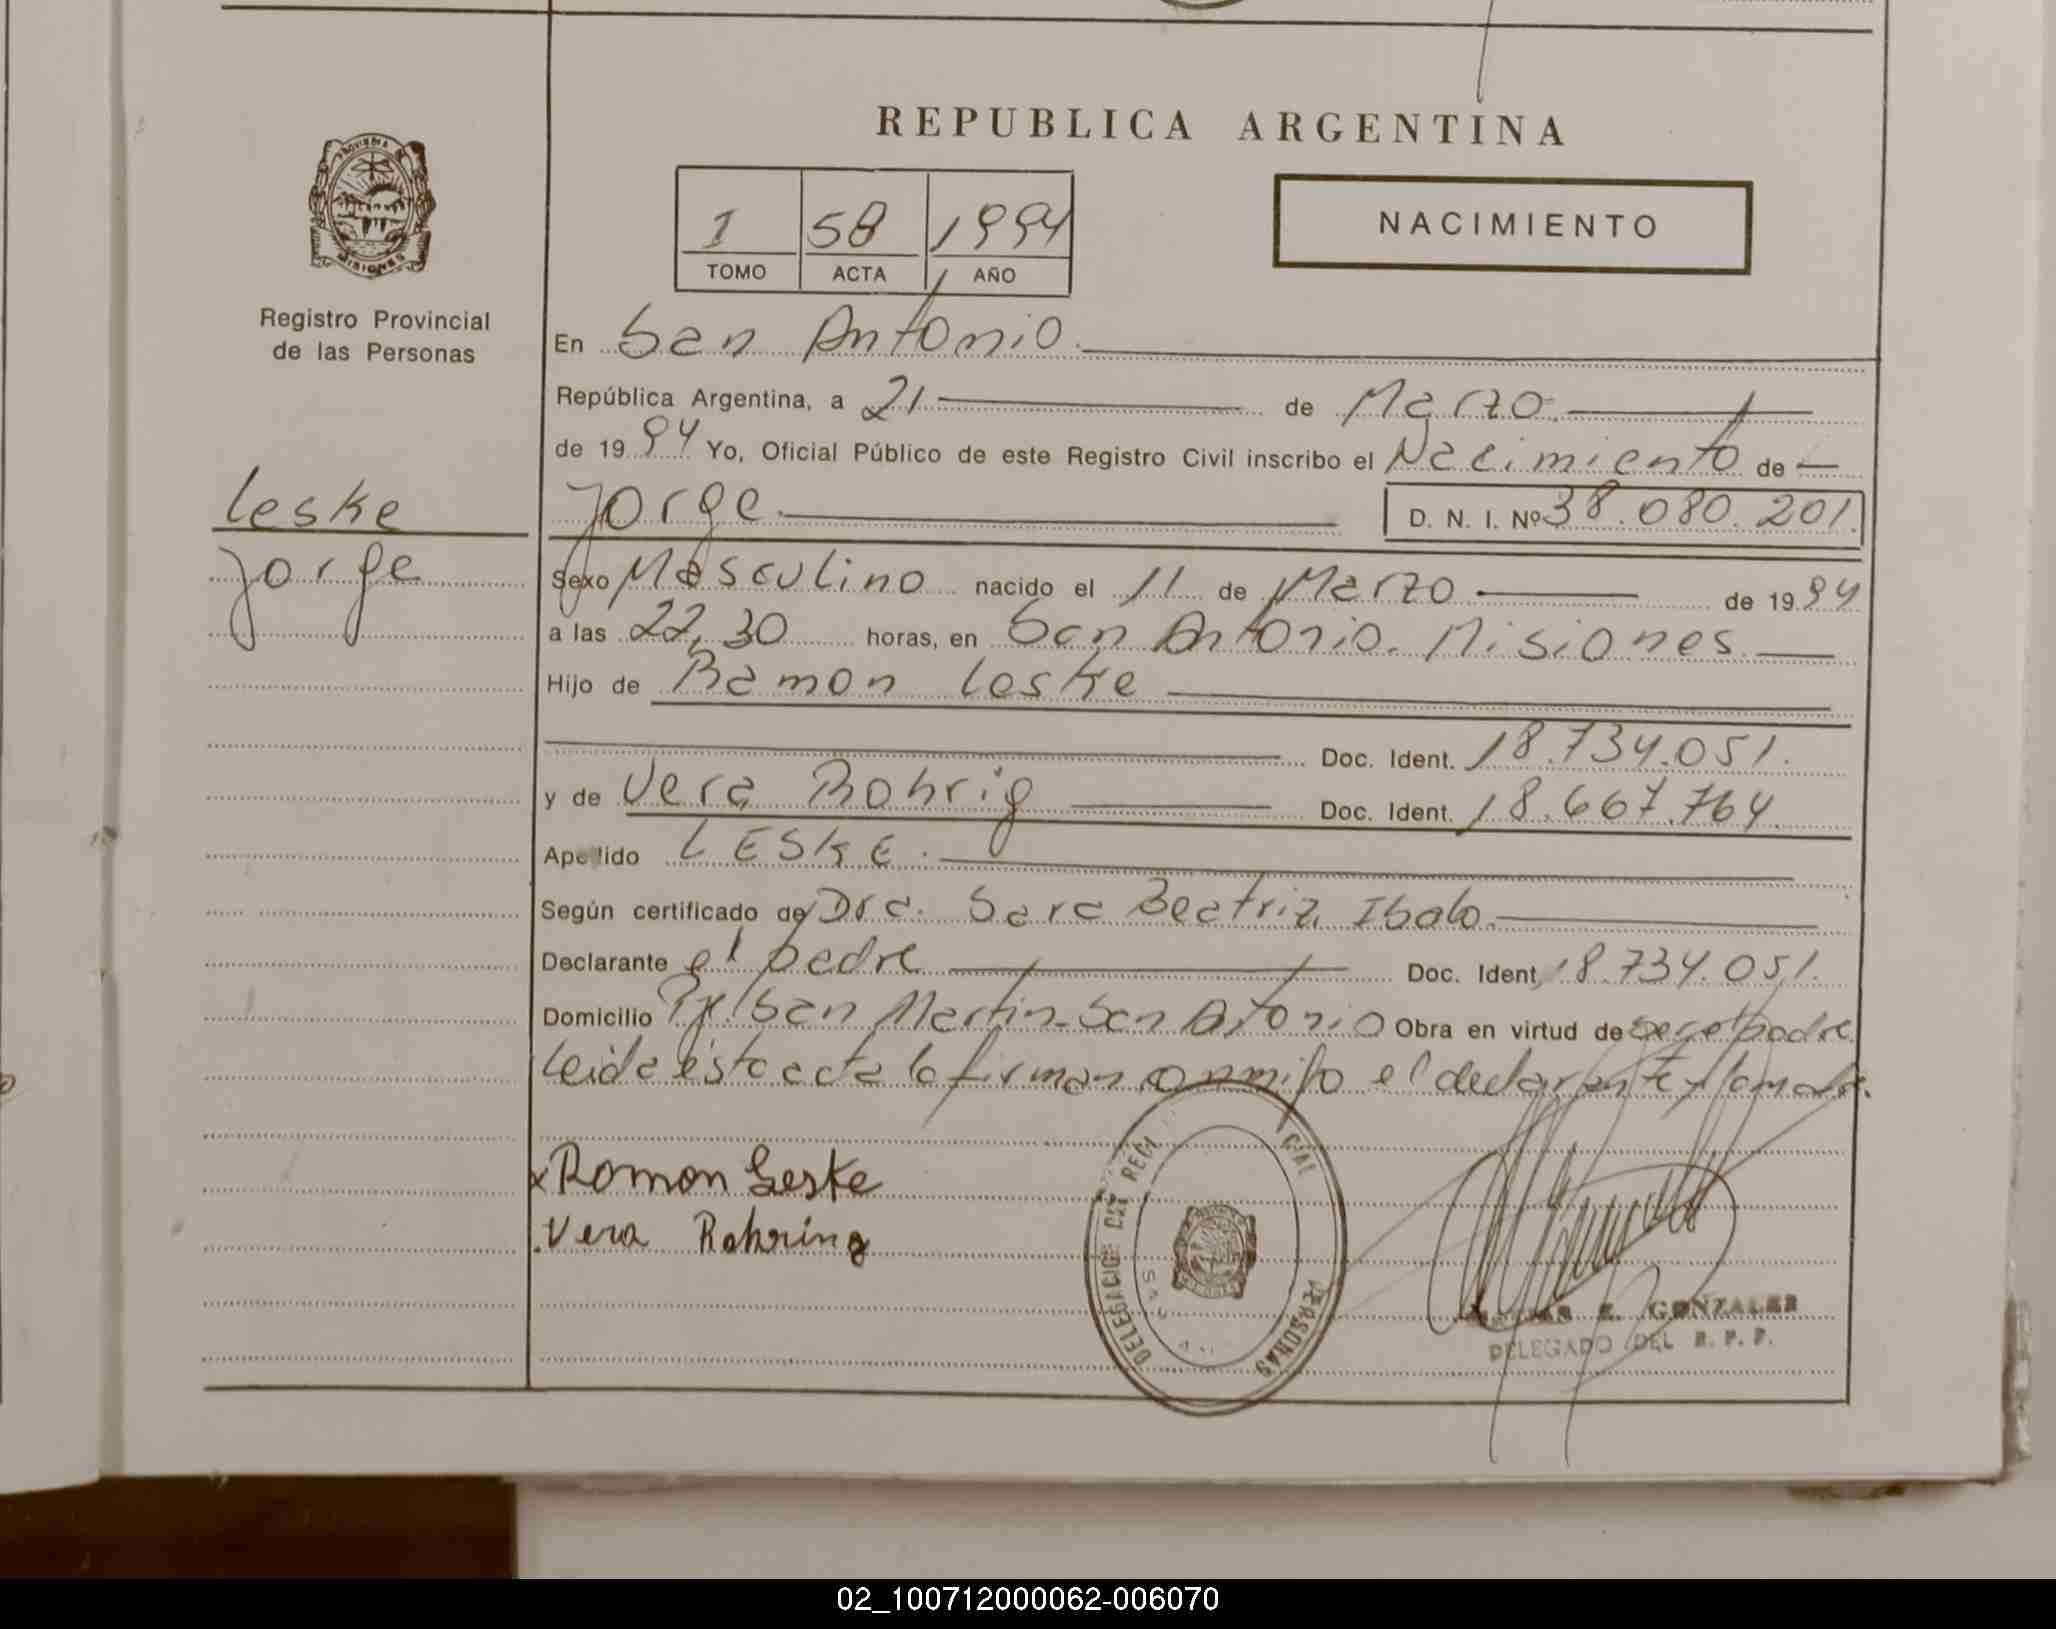 REPUBLICA ARGENTINA
PROVINCIA DE
MISIONES
Registro Provincial
de las Personas
1 58 1994
TOMO ACTA AÑO
NACIMIENTO
En San Antonio.
República Argentina, a 21 de Marzo.
de 1994 Yo, Oficial Público de este Registro Civil inscribo el Nacimiento de
Leske
Jorge. D. N. I. Nº 38.080.201.
Jorge
Sexo Masculino nacido el 11 de Marzo de 1994
a las 22,30 horas, en San Antonio. Misiones.
Hijo de Ramon Leske
Doc. Ident. 18.734.051.
y de Vera Rohrig Doc. Ident. 18.667.764.
Apellido LESKE.
Según certificado de Dra. Sara Beatriz
Declarante el padre Doc. Ident. 18.734.051.
Domicilio San Martin-San Antonio Obra en virtud de ser el padre.
Leida ésta acta la firman conmigo el declarante y la madre.
x Ramon Leske
Vera Rohring
DELEGACION DEL PERSONAS
E. GONZALEZ
DELEGADO DEL R. P. P.
02_100712000062-006070